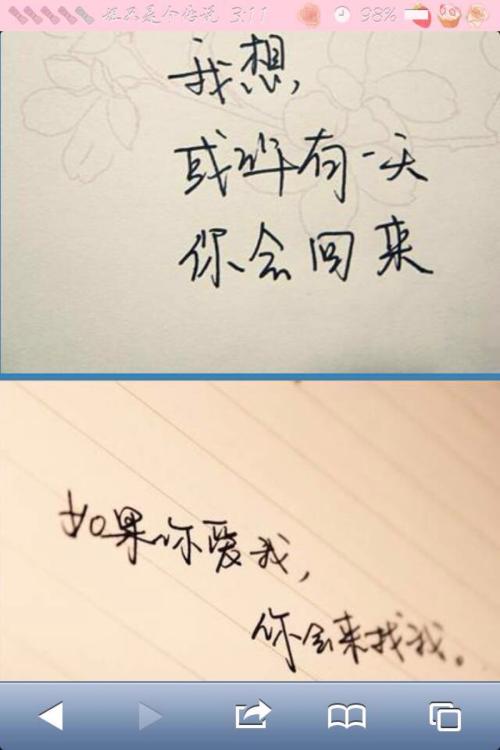 3:11
98%
我想,
或许有一天
你会回来
如果你爱我,
你会来找我。